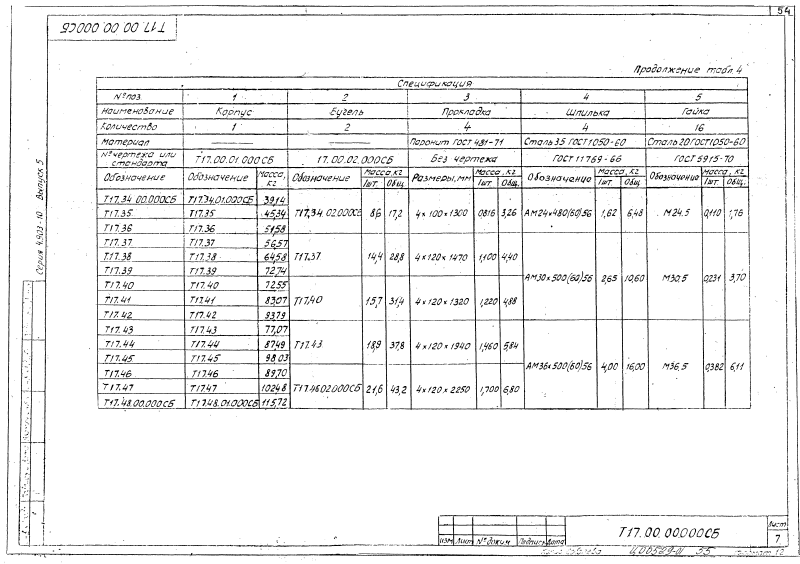 54
Т17.00.00.000СБ
Продолжение табл. 4
Спецификация
№ поз. 1 2 3 4 5
Наименование Корпус Бугель Прокладка Шпилька Гайка
Количество 1 2 4 4 16
Материал — — Паронит ГОСТ 481-71 Сталь 35 ГОСТ 1050-60 Сталь 20 ГОСТ 1050-60
№ чертежа или стандарта Т17.00.01.000СБ 17.00.02.000СБ Без чертежа ГОСТ 11769-66 ГОСТ 5915-70
Обозначение Обозначение Масса, кг Обозначение Масса, кг 1шт. Общ. Размеры, мм Масса, кг 1шт. Общ. Обозначение Масса, кг 1шт. Общ. Обозначение Масса, кг 1шт. Общ.
Т17.34.00.000СБ Т17.34.01.000СБ 39,14
Т17.35 Т17.35 45,34 Т17.34.02.000СБ 8,6 17,2 4×100×1300 0,816 3,26 АМ24×480(60)56 1,62 6,48 М24.5 0,110 1,76
Т17.36 Т17.36 51,58
Т17.37 Т17.37 56,57
Т17.38 Т17.38 64,58 Т17.37 14,4 28,8 4×120×1470 1,100 4,40
Т17.39 Т17.39 72,74
АМ30×500(60)56 2,65 10,60 М30.5 0,231 3,70
Т17.40 Т17.40 72,55
Т17.41 Т17.41 83,07 Т17.40 15,7 31,4 4×120×1320 1,220 4,88
Т17.42 Т17.42 93,79
Т17.43 Т17.43 77,07
Т17.44 Т17.44 87,49 Т17.43 18,9 37,8 4×120×1940 1,460 5,84
Т17.45 Т17.45 98,03
АМ36×500(60)56 4,00 16,00 М36.5 0,382 6,11
Т17.46 Т17.46 89,70
Т17.47 Т17.47 102,48 Т17.46.02.000СБ 21,6 43,2 4×120×2250 1,700 6,80
Т17.48.00.000СБ Т17.48.01.000СБ 115,72
Серия 4.903-10 Выпуск 5
Изм. Лист № докум. Подпись Дата
Т17.00.00.000СБ
Лист
7
55